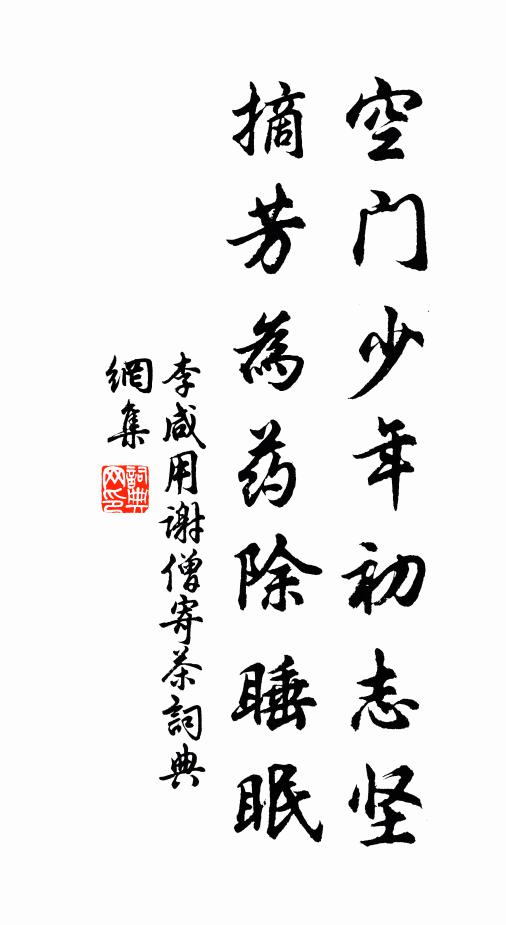 空门少年初志坚
摘芳為药除睡眠
李咸用谢僧寄茶詞典
網集
詞典網印